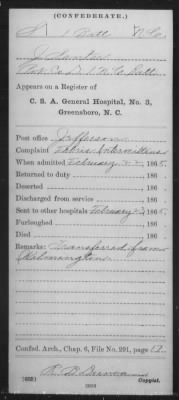 (CONFEDERATE.)
S 1 Batt N.C.
J
Co. D, 1 N.C. Batt
Appears on a Register of
C. S. A. General Hospital, No. 3,
Greensboro, N. C.
Post office Jefferson
Complaint Febris Intermittens
When admitted February 1865.
Returned to duty 186 .
Deserted 186 .
Discharged from service 186 .
Sent to other hospitals February 1865.
Furloughed 186 .
Died 186 .
Remarks: Transferred from
Wilmington
Confed. Arch., Chap. 6, File No. 291, page
Copyist.